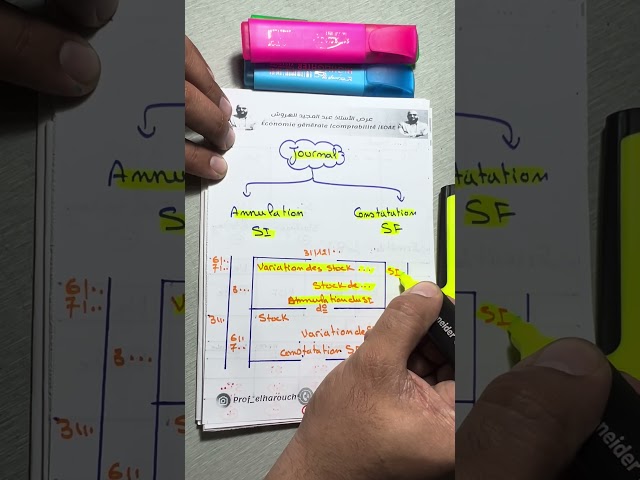 عرض الأستاذ عبد المجيد الهروش
Économie générale /comptabilité /EOAE
Journal
Annulation
SI
Constatation
SF
31/12/..
6/..
7/..
Variation des stock ....
SI
3...
Stock de ...
Annulation du SI
d°
3...
Stock
6/..
7...
Variation de S
constatation S
Prof_elharouch